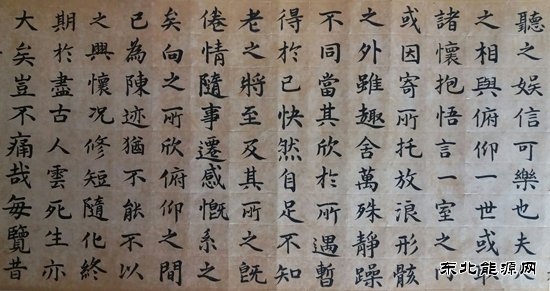 聽之娛信可樂也夫人
之相與俯仰一世或取
諸懷抱悟言一室之內
或因寄所托放浪形骸
之外雖趣舍萬殊靜躁
不同當其欣於所遇暫
得於已快然自足不知
老之將至及其所之既
倦情隨事遷感慨系之
矣向之所欣俯仰之間
已為陳迹猶不能不以
之興懷况修短隨化終
期於盡古人雲死生亦
大矣豈不痛哉每覽昔
东北能源网